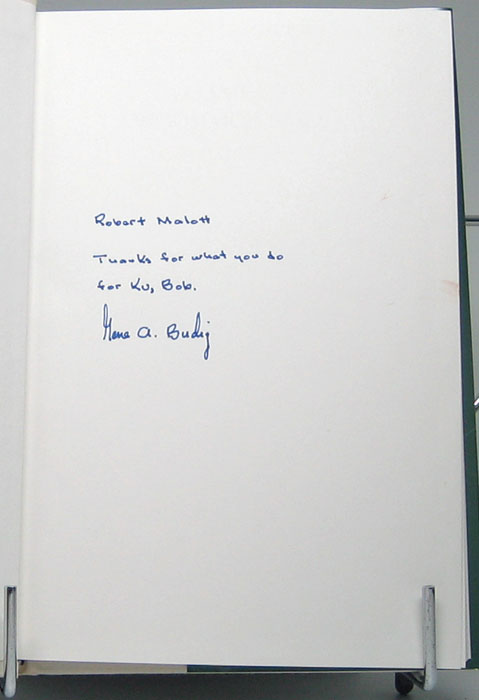 Robert Malott
Thanks for what you do
for KU, Bob.
Gene A. Budig